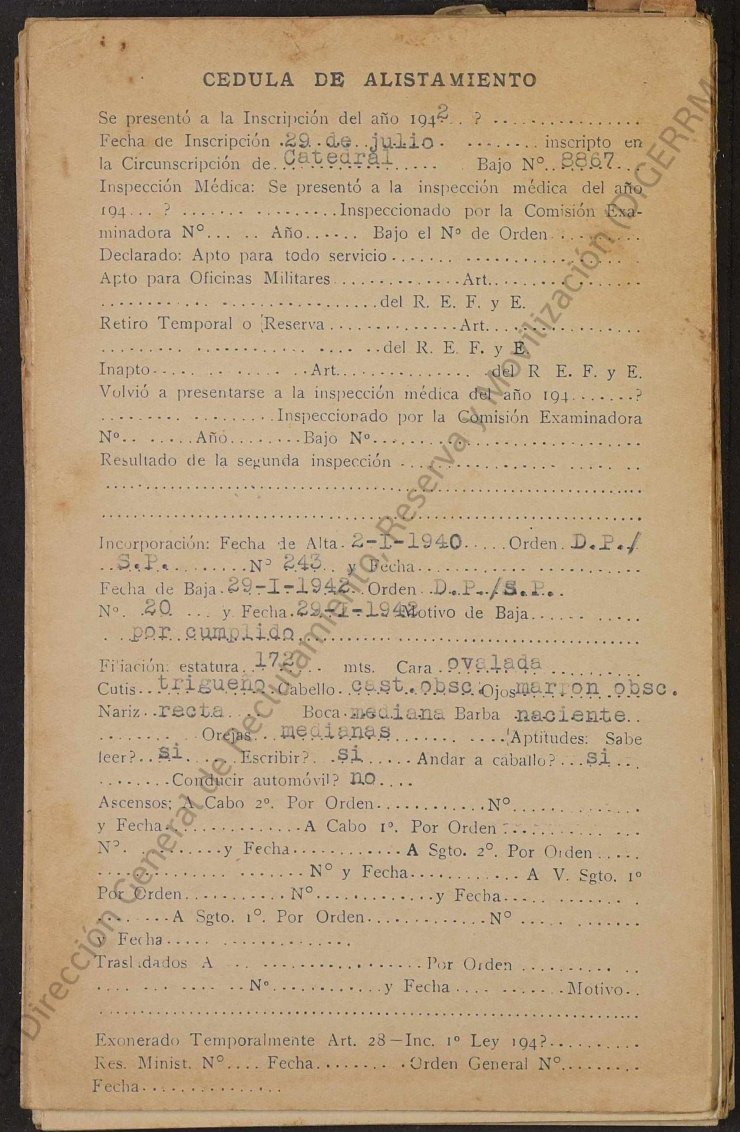 CEDULA DE ALISTAMIENTO
Se presentó a la Inscripción del año 1942.. ? ................
Fecha de Inscripción .29 .de. julio. ........ inscripto en
la Circunscripción de. Catedral ..... Bajo Nº.. 8867...
Inspección Médica: Se presentó a la inspección médica del año
194... ? ....... ..........Inspeccionado por la Comisión Exa-
minadora Nº... .. Año...... Bajo el Nº de Orden..........
Declarado: Apto para todo servicio.... .................
Apto para Oficinas Militares.............Art...............
.......... ................del R. E. F. y E.
Retiro Temporal o Reserva .............Art...............
......... ........... .... ...del R. E. F. y E.
Inapto..... ...... ..Art............... del R E. F. y E.
Volvió a presentarse a la inspección médica del año 194.......?
......... .........Inspeccionado por la Comisión Examinadora
Nº.. .. ...Año........Bajo Nº...........................
Resultado de la segunda inspección ............... .... .. ..
.......................................................
.......................................................
Incorporación: Fecha de Alta. 2-I-1940.....Orden. D.P./
..S.P..........Nº 243.. y Fecha.......................
Fecha de Baja.29-I-1942. Orden ..D.P./S.P..
Nº. .20 ... y Fecha.29-I-1942 Motivo de Baja...... .....
..por cumplido...................................
Filiación: estatura..172... mts. Cara .ovalada ..........
Cutis..trigueño..Cabello .cast.obsc. Ojos marron obsc.
Nariz ..recta.. . Boca.mediana Barba .naciente..
........ Orejas...medianas............ Aptitudes: Sabe
leer?..si..... Escribir?...si..... Andar a caballo?...si...
........Conducir automóvil? no....
Ascensos: A Cabo 2º. Por Orden............Nº..............
y Fecha..............A Cabo 1º. Por Orden ..............
Nº. .........y Fecha............ A Sgto. 2º. Por Orden .....
............... ....... Nº y Fecha........... A V. Sgto. 1º
Por Orden...........Nº..............y Fecha...............
.......A Sgto. 1º. Por Orden............Nº ... .........
y Fecha.... ..............
Trasladados A ... ....................Por Orden ......... ..
... .... ...... ..Nº............y Fecha .... .......Motivo..
.......................................................
Exonerado Temporalmente Art. 28—Inc. 1º Ley 194?..........
Res. Minist. Nº.... Fecha........ .Orden General Nº........
Fecha...............
Dirección General de Reclutamiento, Reserva y Movilización (DIGERRM